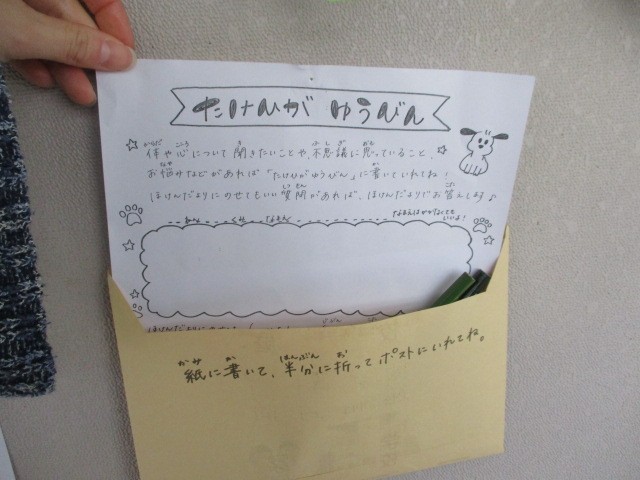 たけひが ゆうびん
体や心について聞きたいことや、不思議に思っていること、
お悩みなどがあれば「たけひがゆうびん」に書いていれてね！
ほけんだよりにのせてもいい質問があれば、ほけんだよりでお答えします♪
ねん くみ なまえ
なまえはかかなくても
いいよ！
紙に書いて、半分に折ってポストにいれてね。